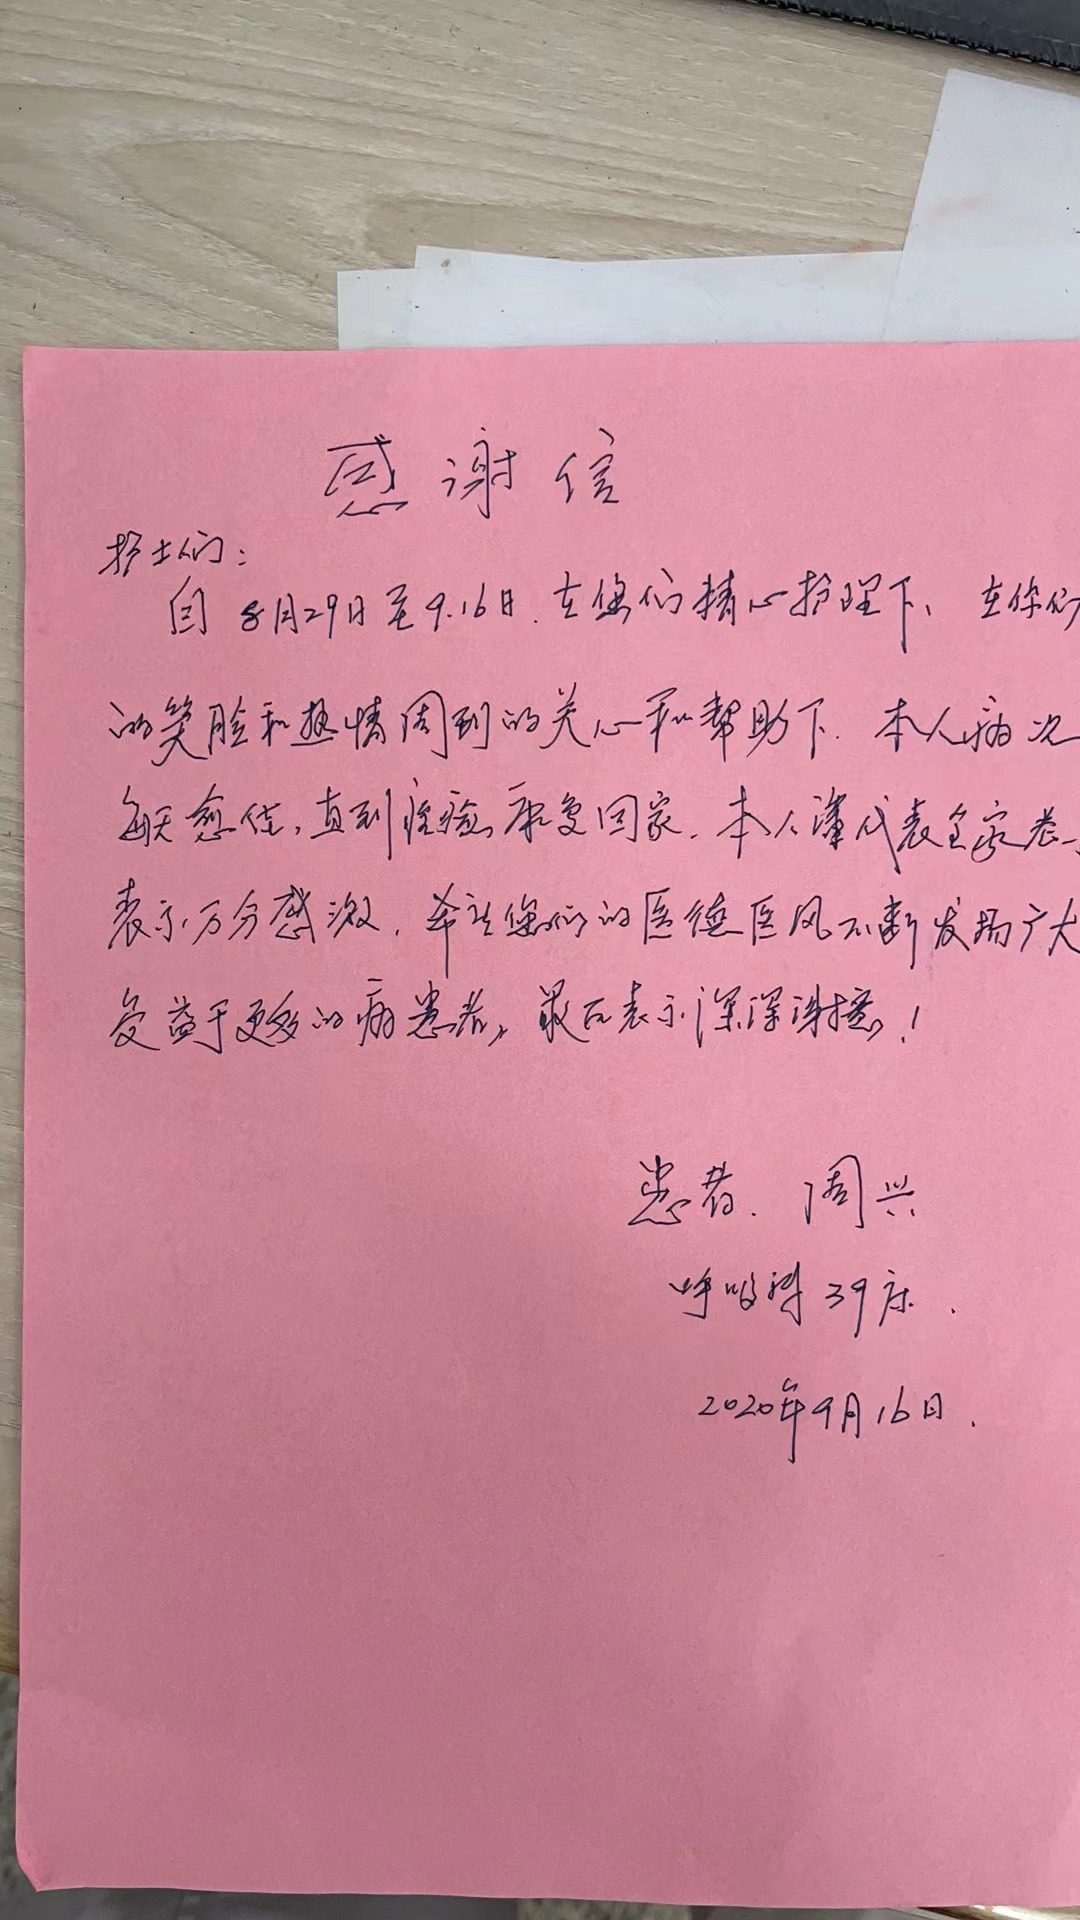 感谢信
护士们：
自8月29日至9.16日.在您们精心护理下、在你们
的笑脸和热情周到的关心和帮助下.本人病况
每天愈佳,直到痊愈康复回家.本人谨代表全家老
表示万分感激.希望您们的医德医风不断发扬广大
受益于更多的病患者,最后表示深深谢意!
患者.周兴
呼吸科39床.
2020年9月16日.